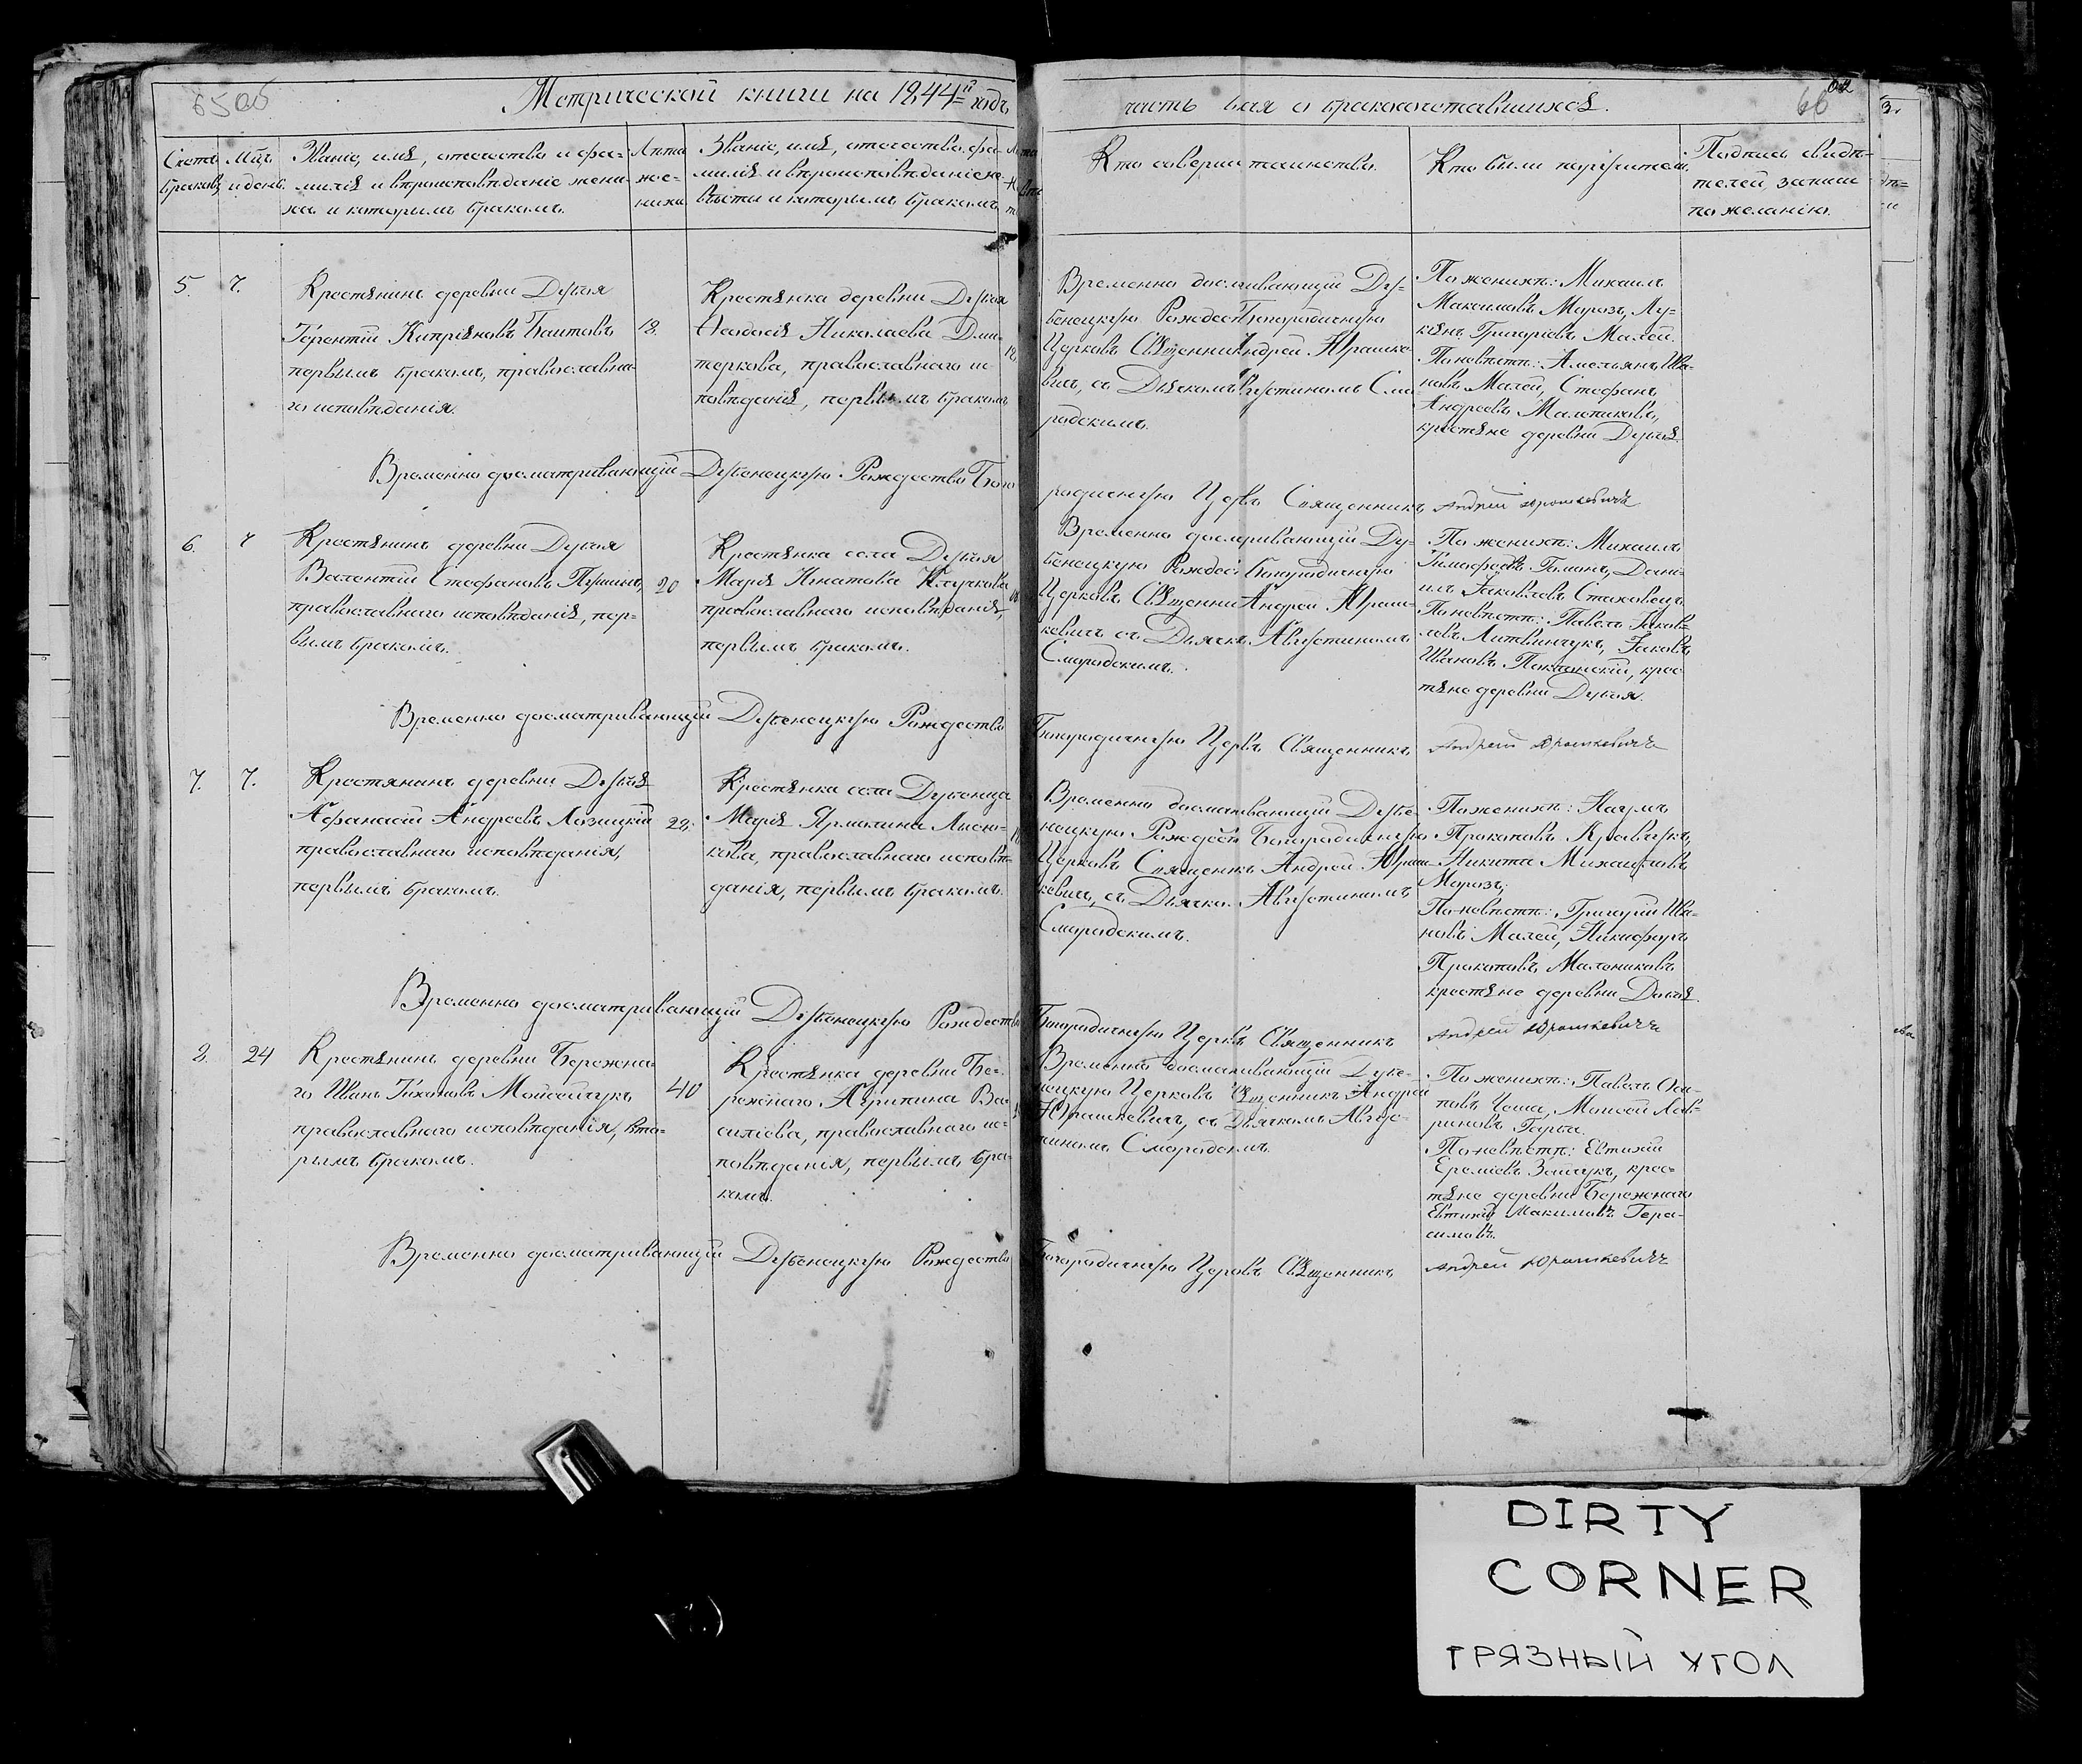 65 об
Метрической книги на 1844й годъ
часть 2ая о бракосочетавшихся.
66
Счетъ браковъ
Мцъ и день
Званіе, имя, отечество и фа-
милія и вѣроисповѣданіе жени-
ха и которымъ бракомъ.
Лѣта
же-
ниха
Званіе, имя, отечество, фа-
милія и вѣроисповѣданіе не-
вѣсты и которымъ бракомъ
Кто соверш таинство.
Кто были поручители
Подпись свидѣ-
телей записи
по желанію.
5.
7.
Крестянинъ деревни Дубая
Терентій Кипріяновъ Баштовъ
первымъ бракомъ, православна-
го исповѣданія.
18.
Крестянка деревни Дубая
Ѳеодосія Николаева Дми-
теркова, православнаго ис-
повѣданія, первымъ бракомъ
18
Временно досматривающій Ду-
бенецкую Рождест Богородичную
Церковь Священник Андрей Юрашке-
вичъ, съ Дьячкомъ Августиномъ Смо
родскимъ.
По женихѣ: Михаилъ
Максимовъ Морозъ, Лу-
кянъ Григоріевъ Малей.
По невѣстѣ: Амельянъ Ива-
новъ Малей, Стефанъ
Андреевъ Мальниковъ,
крестяне деревни Дубая.
Временно досматривающій Дубенецкую Рождество Бого
родичную Церквь Священникъ Андрей Юрошкевичъ
6.
7
Крестянинъ деревни Дубая
Валентій Стефановъ
православнаго исповѣданія, пер-
вымъ бракомъ.
20
Крестянка села Дубая
Марія Игнатова Клучкова
православнаго исповѣданія,
первымъ бракомъ.
Временно досматривающій Ду-
бенецкую Рождес Богородичную
Церковь Священни Андрей Юраш-
кевичъ съ Дьячк. Августиномъ
Смородскимъ.
По женихѣ: Михаилъ
Тимофеевъ Дани-
илъ Яковлевъ Стаховецъ
По невѣстѣ: Павелъ Яков-
левъ Литвинчукъ, Яковъ
Ивановъ крес
тяне деревни Дубая.
Временно досматривающій Дубенецкую Рождество
Богородичную Церквь Священникъ Андрей Юрошкевичъ
7.
7.
Крестянинъ деревни Дубая
Афанасій Андреевъ Лозицкій
православнаго исповѣданія,
первымъ бракомъ.
22.
Крестянка села Дубенца
Марія Ярмолина Лысю-
кова, православнаго исповѣ-
данія, первымъ бракомъ.
Временно досматривающій Дубе-
нецкую Рождест Богородичную
Церковь Священикъ Андрей Юраш-
кевичъ, съ Дьячко. Августиномъ
Смородскимъ.
По женихѣ: Наумъ
Прокоповъ Кравчукъ,
Никита Михайловъ
Морозъ;
По невѣстѣ: Григорій Ива-
новъ Малей, Никифоръ
Прокоповъ Мальниковъ
крестяне деревни Дубая.
Временно досматривающій Дубенецкую Рождество
Богородичную Церквь Священникъ Андрей Юрошкевичъ
8.
24
Крестянинъ деревни Бережна-
го Иванъ Тихоновъ Мойсейчукъ
православнаго исповѣданія, вто-
рымъ бракомъ.
40
Крестянка деревни Бе-
режнаго Агрипина Ва-
силіева, православнаго ис-
повѣданія, первымъ бра-
комъ.
Временно досматривающій Дубе-
нецкую Церковь Священникъ Андрей
Юрашкевичъ, съ Дьячкомъ Авгус-
тиномъ Смородскимъ.
По женихѣ: Павелъ Оси-
повъ Моисей Лав-
риновъ
По невѣстѣ: Евтихій
Ереміевъ Зайчукъ, крес-
тяне деревни Бережнаго
Евтихій Макимовъ Гера-
симовъ.
Временно досматривающій Дубенецкую Рождество
Богородичную Церковь Священникъ Андрей Юрошкевичъ
DIRTY
CORNER
ГРЯЗНЫЙ УГОЛ